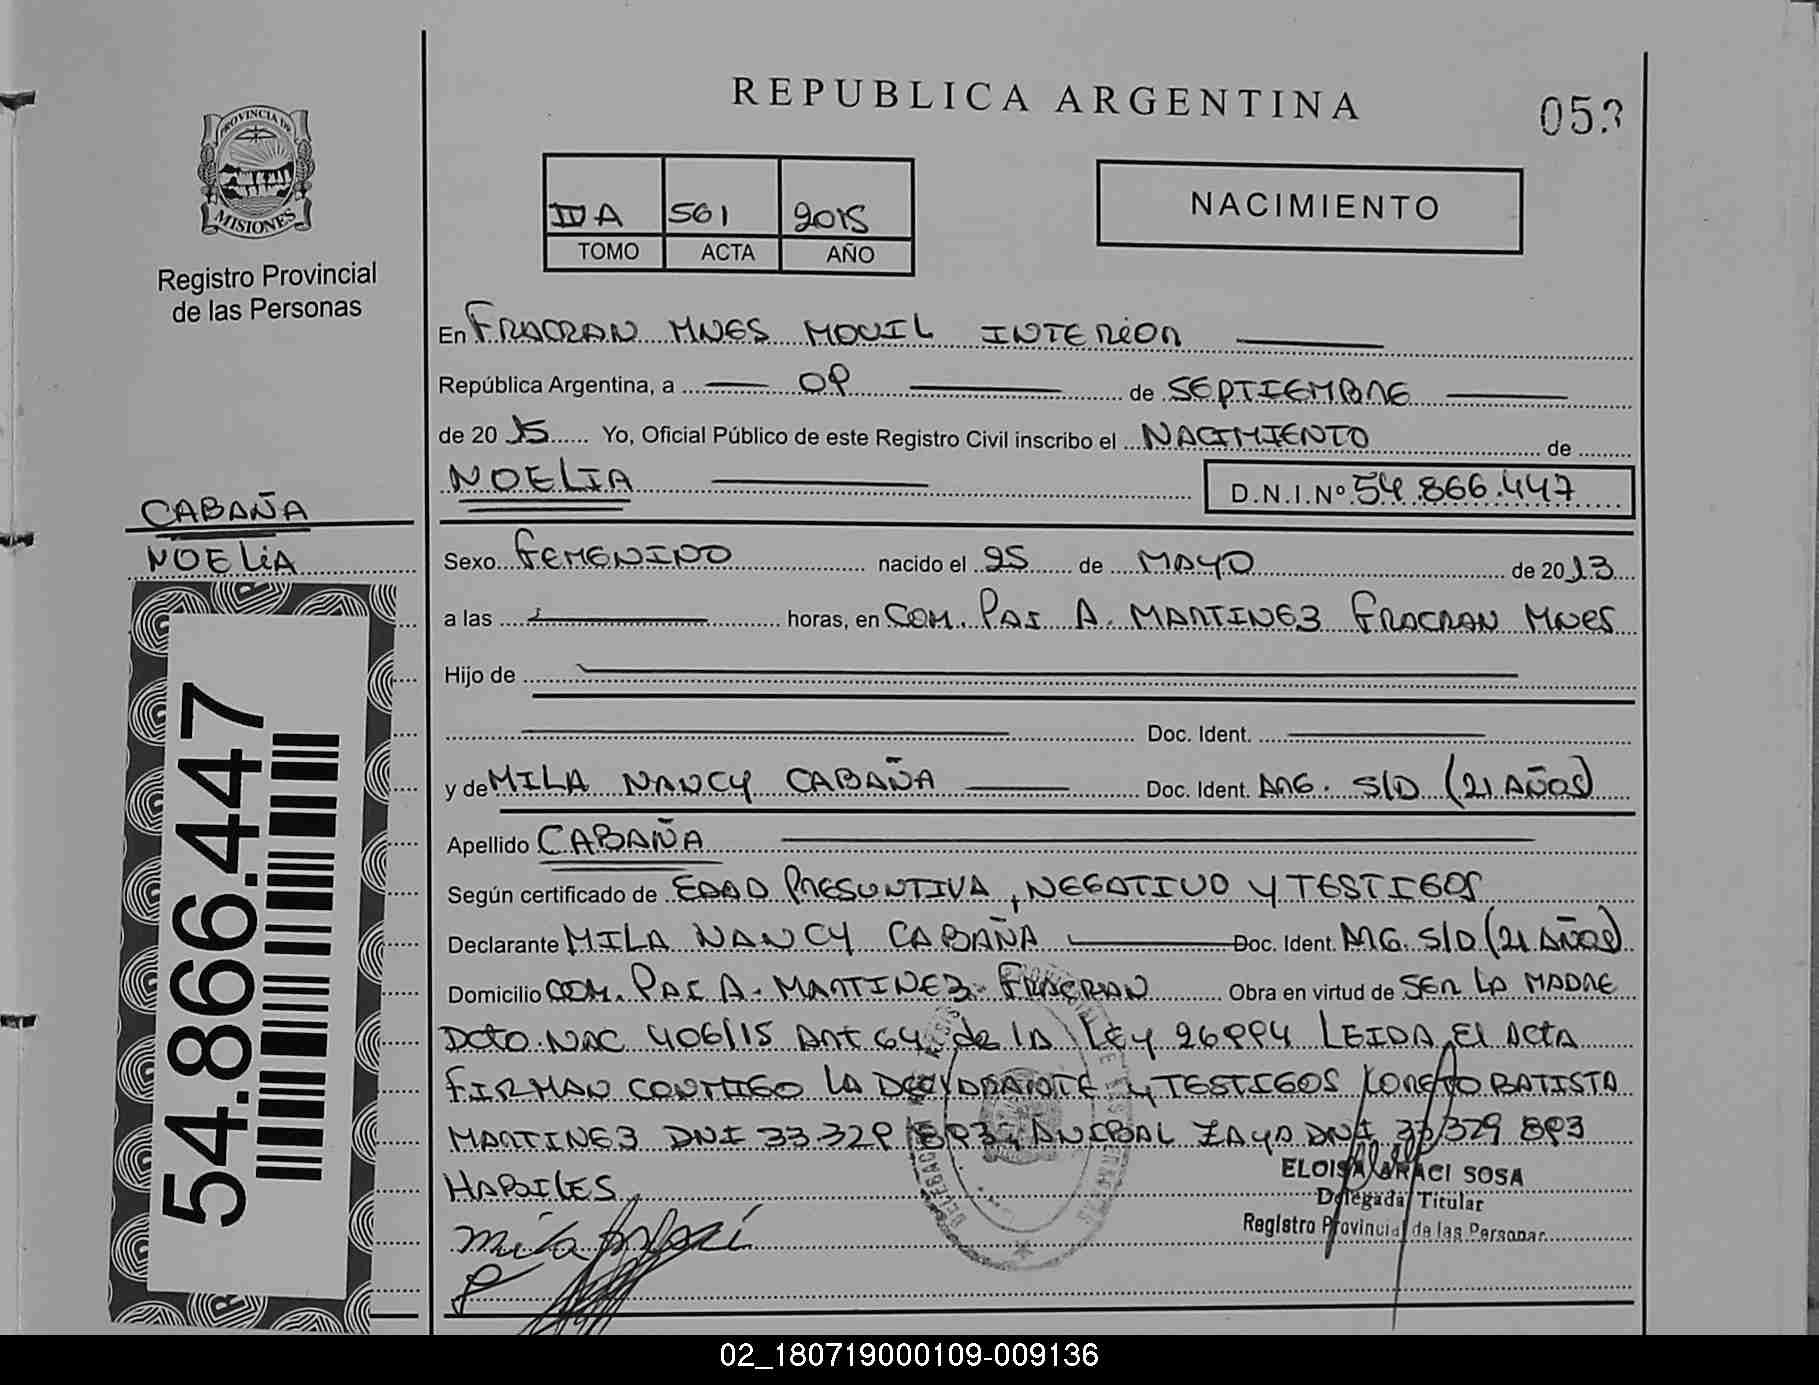 REPUBLICA ARGENTINA
053
PROVINCIA DE
MISIONES
Registro Provincial
de las Personas
II A 561 2015
TOMO ACTA AÑO
NACIMIENTO
En FRACRAN MNES MOVIL INTERIOR
República Argentina, a 09 de SEPTIEMBRE
de 20 15 Yo, Oficial Público de este Registro Civil inscribo el NACIMIENTO de
NOELIA D.N.I.Nº 54.866.447
CABAÑA
NOELIA
Sexo FEMENINO nacido el 25 de MAYO de 2013
a las horas, en COM. PAI A. MARTINEZ FRACRAN MNES
Hijo de
Doc. Ident.
y de MILA NANCY CABAÑA Doc. Ident. ARG. S/D (21 AÑOS)
Apellido CABAÑA
Según certificado de EDAD PRESUNTIVA, NEGATIVO Y TESTIGOS
Declarante MILA NANCY CABAÑA Doc. Ident. ARG. S/D (21 AÑOS)
Domicilio COM. PAI A. MARTINEZ- FRACRAN Obra en virtud de SER LA MADRE
DCTO. NAC 406/15 ART 64 de LA LEY 26994 LEIDA El ACTA
FIRMAN CONMIGO LA DECLARANTE y TESTIGOS LORETO BATISTA
MARTINEZ DNI 33.329.893, ANIBAL ZAYA DNI 33/329 893
HABILES
ELOISA ARACI SOSA
Delegada Titular
Registro Provincial de las Personas
Mila
54.866.447
02_180719000109-009136